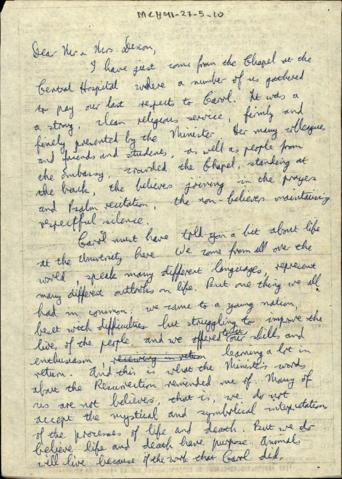 MCH91-27-5-10
Dear Mr & Mrs. Dixon,
I have just come from the Chapel at the
Central Hospital where a number of us gathered
to pay our last respects to Carol. It was a
a strong, clean religious service, firmly and
finely presented by the Minister. Her many colleagues
and friends and students, as well as people from
the Embassy, crowded the Chapel, standing at
the back, the believers joining in the prayers
and Psalm recitation, the non-believers maintaining
respectful silence.
Carol must have told you a bit about life
at the University here. We come from all over the
world speak many different languages, represent
many different outlooks on life. But one thing we all
had in common: we came to a young nation,
beset with difficulties but struggling to improve the
lives of the people and we offered our skills and
enthusiasm receiving in return learning a lot in
return. And this is what the Minister's words
above the Resurrection reminded me of. Many of
us are not believers, that is, we do not
accept the mystical and symbolical interpretation
of the processes of life and death. But we do
believe life and death have purpose. Animals
will live because of the work that Carol did.